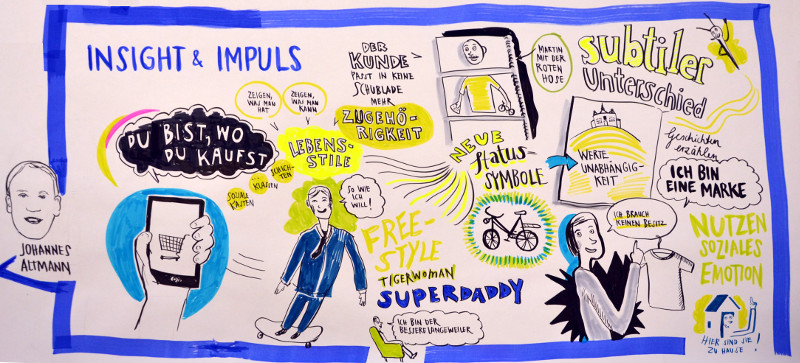 INSIGHT & IMPULS
DER
KUNDE
PASST IN KEINE
SCHUBLADE
MEHR
ZUGEHÖ-
RIGKEIT
ZEIGEN,
WAS MAN
HAT
ZEIGEN,
WAS MAN
KANN
DU BIST, WO
DU KAUFST
LEBENS-
STILE
SOZIALE
KASTEN
KLASSEN
SCHICH-
TEN
JOHANNES
ALTMANN
SO WIE
ICH
WILL!
FREE-
STYLE
TIGERWOMAN
SUPERDADDY
ICH BIN DER
BESSERE LANGEWEILER
NEUE
Status-
SYMBOLE
MARTIN
MIT DER
ROTEN
HOSE
subtiler
Unterschied
WERTE
UNABHÄNGIG-
KEIT
Geschichten
erzählen
ICH BIN
EINE MARKE
ICH BRAUCH
KEINEN BESITZ
NUTZEN
SOZIALES
EMOTION
HIER SIND SIE
ZU HAUSE!